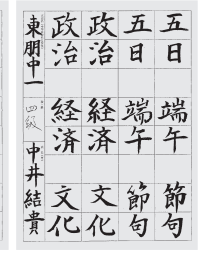 五日端午節句
五日端午節句
政治経済文化
政治経済文化
東朋中一四級中井結貴